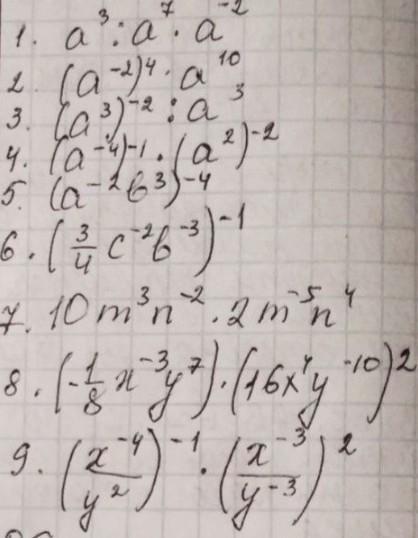 1. a³ : a⁷ · a⁻²
2. (a⁻²)⁴ · a¹⁰
3. (a³)⁻² : a³
4. (a⁻⁴)⁻¹ · (a²)⁻²
5. (a⁻²b³)⁻⁴
6. (3/4 c⁻²b⁻³)⁻¹
7. 10m³n⁻² · 2m⁻⁵n⁴
8. (-1/8 x⁻³y⁷) · (16x⁴y⁻¹⁰)²
9. (x⁻⁴/y²)⁻¹ · (x⁻³/y⁻³)²